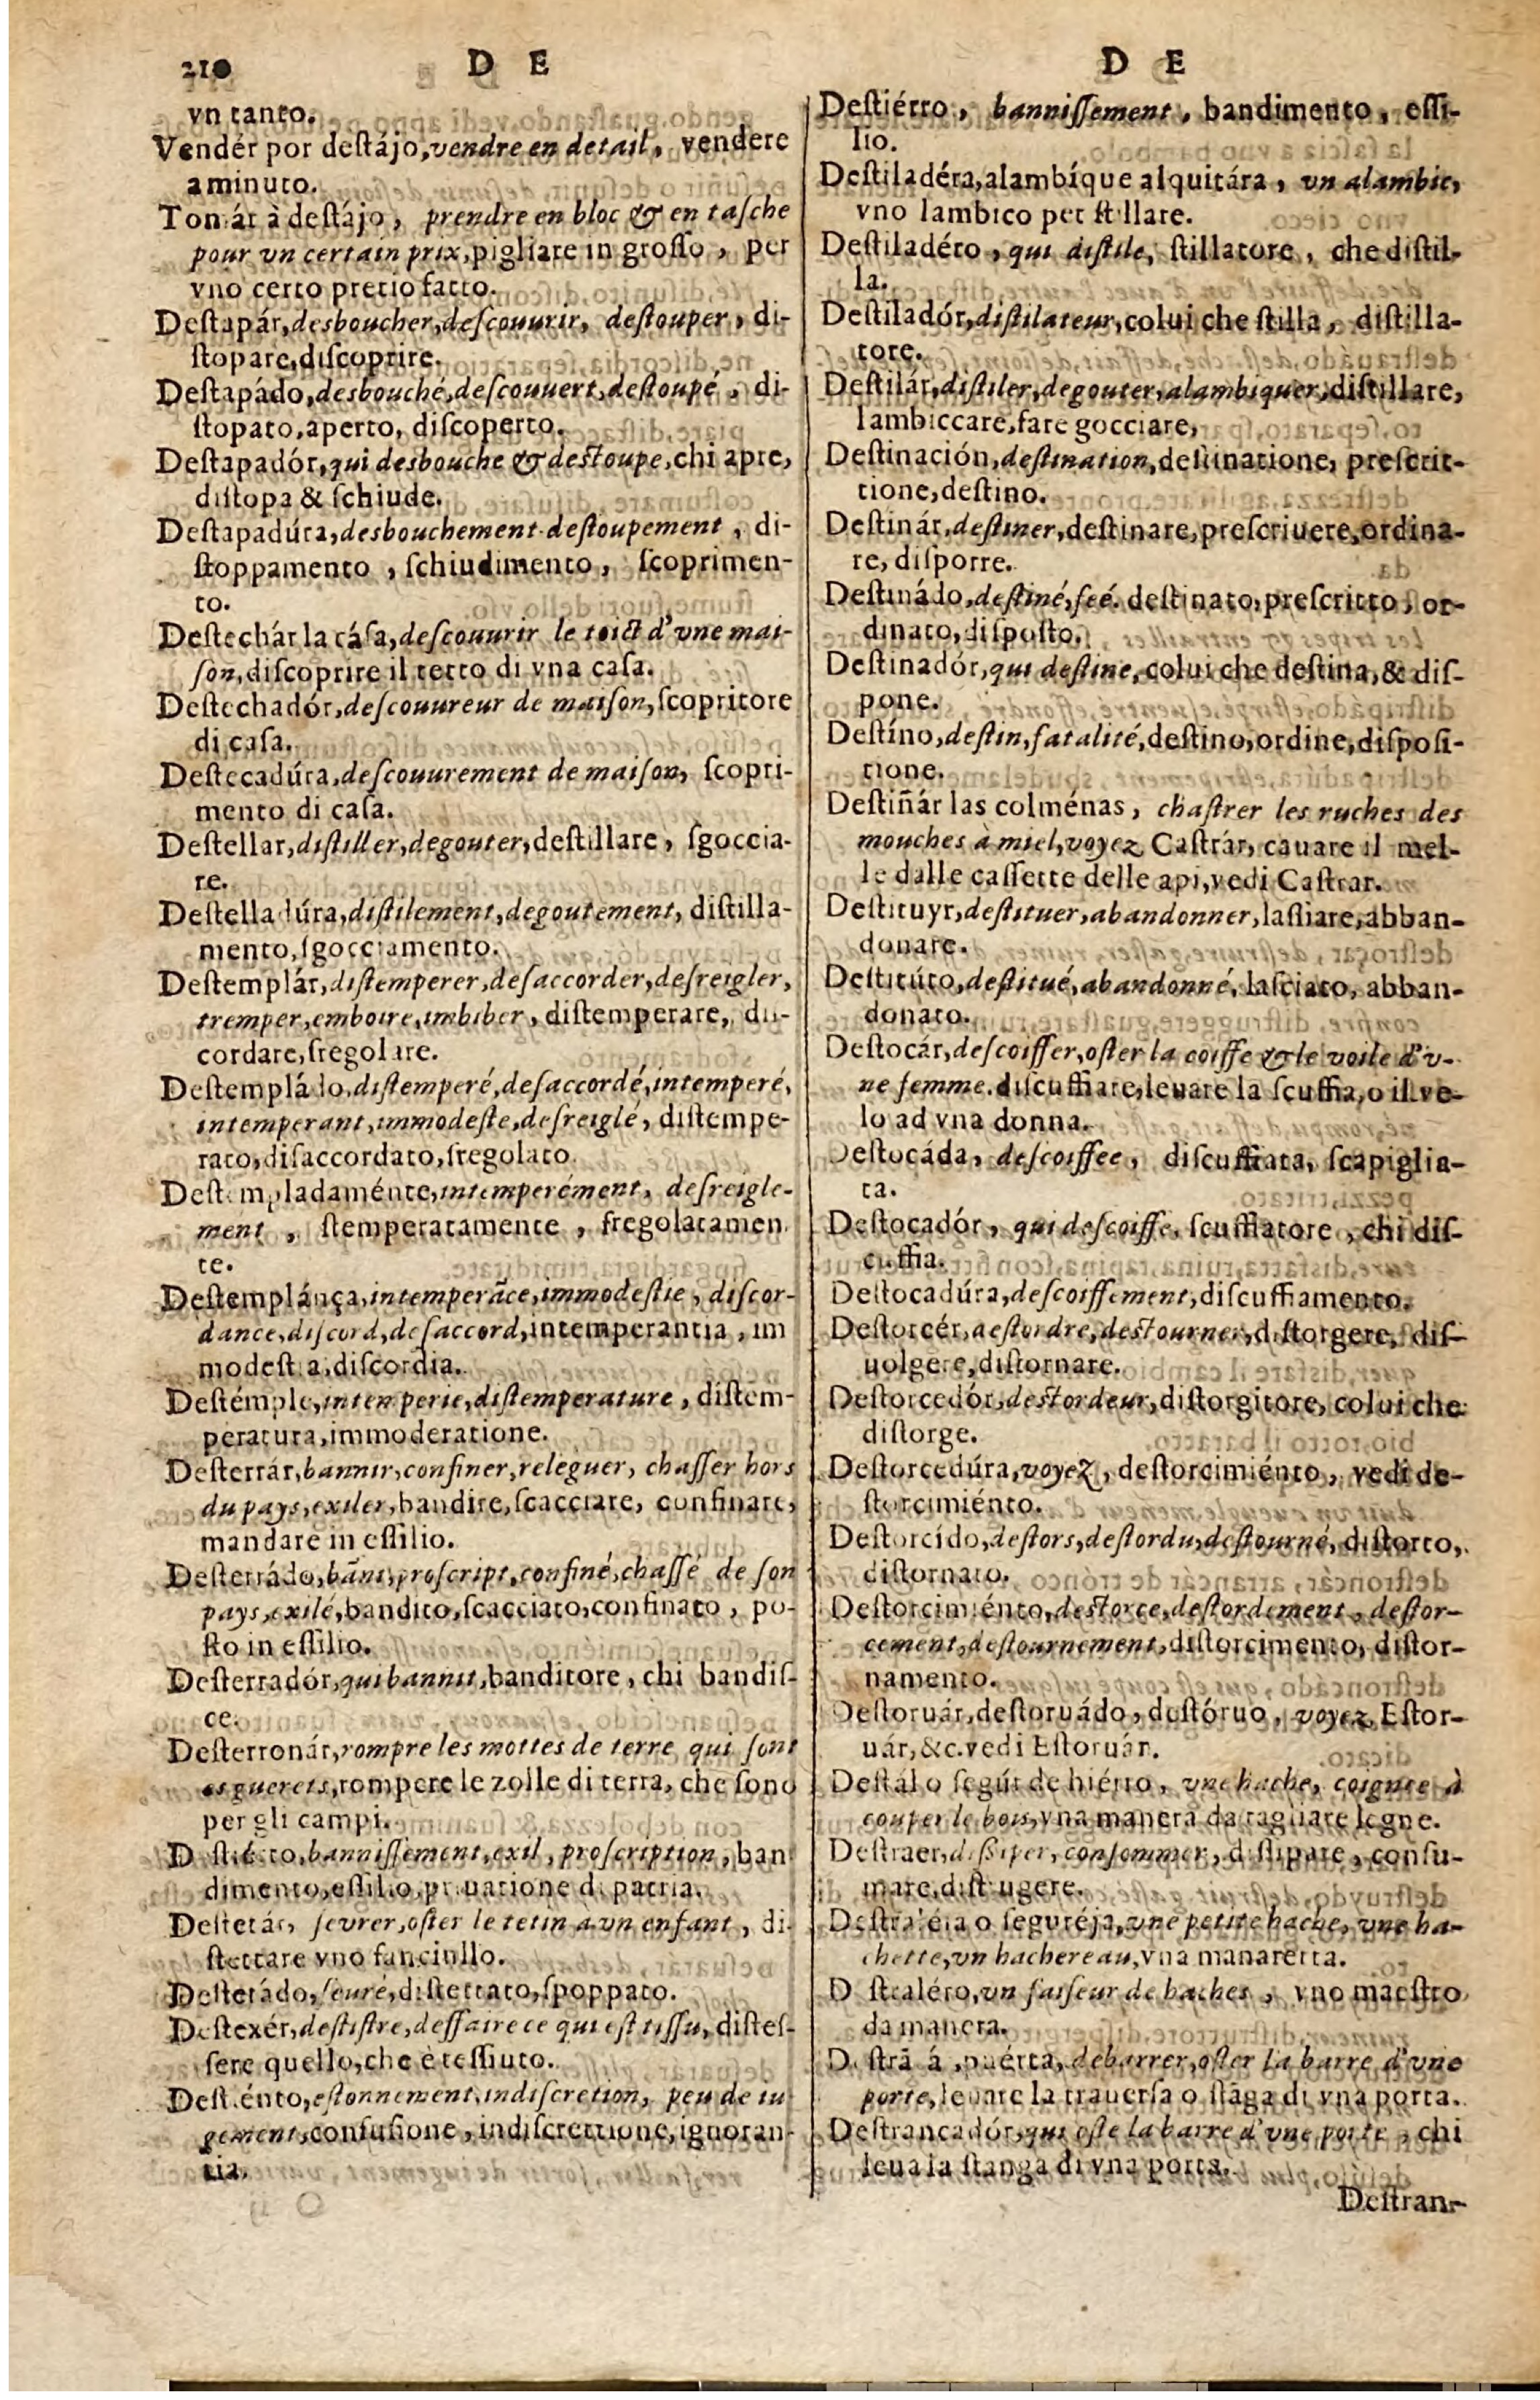 210 D E
vn tanto.
Vendér por deſtájo, vendre en detail, vendere
a minuto.
Tomár à deſtájo, prendre en bloc & en taſche
pour vn certain prix, pigliare in groſſo, per
vno certo pretio fatto.
Deſtapár, desboucher, deſcouurir, deſtouper, di-
ſtopare, diſcoprire.
Deſtapádo, desbouché, deſcouuert, deſtoupé, di-
ſtopato, aperto, diſcoperto.
Deſtapadór, qui desbouche & deſtoupe, chi apre,
diſtopa & ſchiude.
Deſtapadúra, desbouchement deſtoupement, di-
ſtoppamento, ſchiudimento, ſcoprimen-
to.
Deſtechár la cáſa, deſcouurir le toict d'vne mai-
ſon, diſcoprire il tetto di vna caſa.
Deſtechadór, deſcouureur de maiſon, ſcopritore
di caſa.
Deſtecadúra, deſcouurement de maiſon, ſcopri-
mento di caſa.
Deſtellar, diſtiller, degouter, deſtillare, ſgoccia-
re.
Deſtelladúra, diſtilement, degoutement, diſtilla-
mento, ſgocciamento.
Deſtemplár, diſtemperer, deſaccorder, deſreigler,
tremper, emboire, imbiber, diſtemperare, diſ-
cordare, ſregolare.
Deſtempládo, diſtemperé, deſaccordé, intemperé,
intemperant, immodeſte, deſreiglé, diſtempe-
rato, diſaccordato, ſregolato
Deſtempladaménte, intemperément, deſreigle-
ment, ſtemperatamente, ſregolatamen
te.
Deſtemplánça, intemperāce, immodeſtie, diſcor-
dance, diſcord, deſaccord, intemperantia, im
modeſtia, diſcordia.
Deſtémple, intemperie, diſtemperature, diſtem-
peratura, immoderatione.
Deſterrár, bannir, confiner, releguer, chaſſer hors
du pays, exiler, bandire, ſcacciare, confinare,
mandare in eſſilio.
Deſterrádo, bāni, proſcript, confiné, chaſſé de ſon
pays, exilé, bandito, ſcacciato, confinato, po-
ſto in eſſilio.
Deſterradór, qui bannit, banditore, chi bandiſ-
ce.
Deſterronár, rompre les mottes de terre qui ſont
es guerets, rompere le zolle di terra, che ſono
per gli campi.
banniſſement, exil, proſcription, ban
dimento, eſſilio, priuatione di patria.
Deſtetár, ſevrer, oſter le tetin à vn enfant, di-
ſtettare vno fanciullo.
Deſtetádo, ſeuré, diſtettato, ſpoppato.
Deſtexér, deſtiſtre, deffaire ce qui eſt tiſſu, diſteſ-
ſere quello, che è teſſiuto.
eſtonnement, indiſcretion, peu de iu
gement, confuſione, indiſcrettione, ignoran-
tia.
D E
Deſtiérro, banniſſement, bandimento, eſſi-
lio.
Deſtiladéra, alambíque alquitára, vn alambic,
vno lambico per ſtillare.
Deſtiladéro, qui diſtile, ſtillatore, che diſtil-
la.
Deſtiladór, diſtilateur, colui che ſtilla, diſtilla-
tore.
Deſtilár, diſtiler, degouter, alambiquer, diſtillare,
lambiccare, fare gocciare,
Deſtinación, deſtination, deſtinatione, preſcrit-
tione, deſtino.
Deſtinár, deſtiner, deſtinare, preſcriuere, ordina-
re, diſporre.
Deſtinádo, deſtiné, feé. deſtinato, preſcritto, or-
dinato, diſpoſto.
Deſtinadór, qui deſtine, colui che deſtina, & diſ-
pone.
Deſtíno, deſtin, fatalité, deſtino, ordine, diſpoſi-
tione.
Deſtiñár las colménas, chaſtrer les ruches des
mouches à miel, voyez Caſtrár, cauare il mel-
le dalle caſſette delle api, vedi Caſtrar.
Deſtituyr, deſtituer, abandonner, laſiare, abban-
donare.
Deſtitúto, deſtitué, abandonné, laſciato, abban-
donato.
Deſtocár, deſcoiffer, oſter la coiffe & le voile d'v-
ne femme. diſcuffiare, leuare la ſcuffia, o il ve-
lo ad vna donna.
Deſtocáda, deſcoiffee, diſcuffiata, ſcapiglia-
ta.
Deſtocadór, qui deſcoiffe, ſcuffiatore, chi diſ-
cuffia.
Deſtocadúra, deſcoiffement, diſcuffiamento.
Deſtorcér, deſtordre, deſtourner, diſtorgere, diſ-
uolgere, diſtornare.
Deſtorcedór, deſtordeur, diſtorgitore, colui che
diſtorge.
Deſtorcedúra, voyez, deſtorcimiénto, vedi de-
ſtorcimiénto.
Deſtorcído, deſtors, deſtordu, deſtourné, diſtorto,
diſtornato.
Deſtorcimiénto, deſtorce, deſtordement, deſtor-
cement, deſtournement, diſtorcimento, diſtor-
namento.
Deſtoruár, deſtoruádo, deſtóruo, voyez Eſtor-
uár, &c. vedi Eſtoruár.
Deſtál o ſegúr de hiérro, vne hache, coignee à
couper le bois, vna manera da tagliare legne.
Deſtraer, diſſiper, conſommer, diſſipare, conſu-
mare, diſtrugere.
Deſtraléja o ſeguréja, vne petite hache, vne ha-
chette, vn hachereau, vna manaretta.
vn faiſeur de haches, vno maeſtro
da manera.
puérta, debarrer, oſter la barre d'vne
porte, leuare la trauerſa o ſtāga di vna porta.
Deſtrancadór, qui oſte la barre d'vne porte, chi
leua la ſtanga di vna porta.
Deſtran-